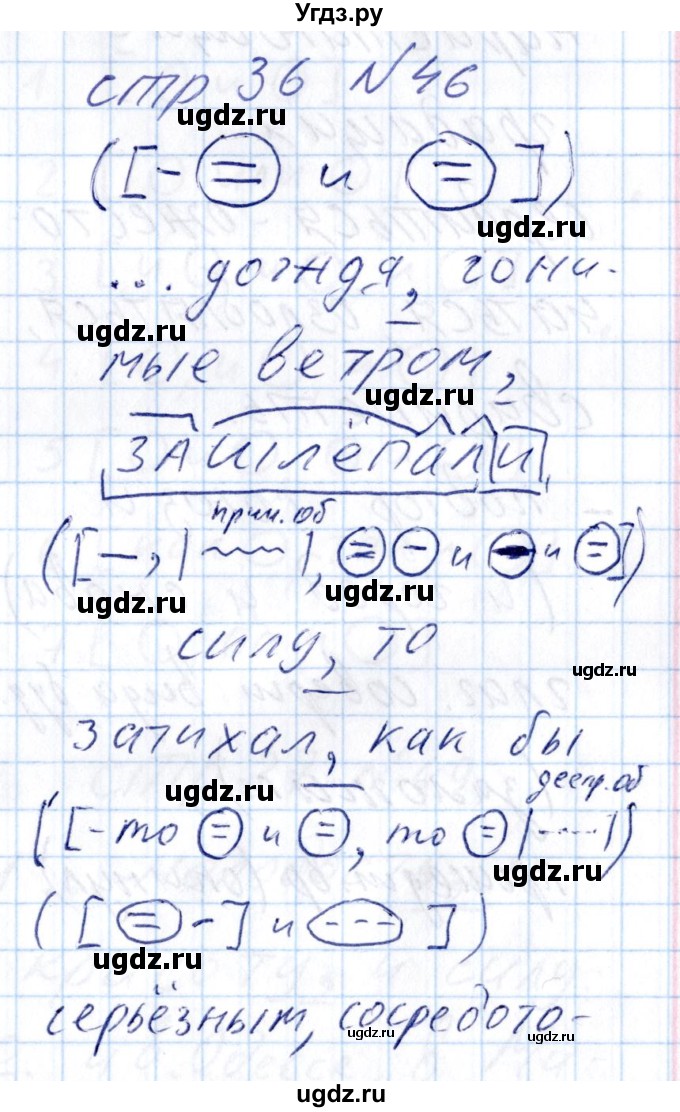 Угдз.ру
стр 36 № 46
([- = и = ])
... дождя, гони-
мые ветром,
зашлёпали
прич. об
([—, |~~~|, = — и — и =])
силу, то
затихал, как бы
деепр. об
([- то = и =, то = |-.-.-|])
([= -] и --- ])
серьёзным, сосредото-
ugdz.ru
ugdz.ru
ugdz.ru
ugdz.ru
ugdz.ru
ugdz.ru
ugdz.ru
ugdz.ru
ugdz.ru
ugdz.ru
ugdz.ru
ugdz.ru
ugdz.ru
ugdz.ru